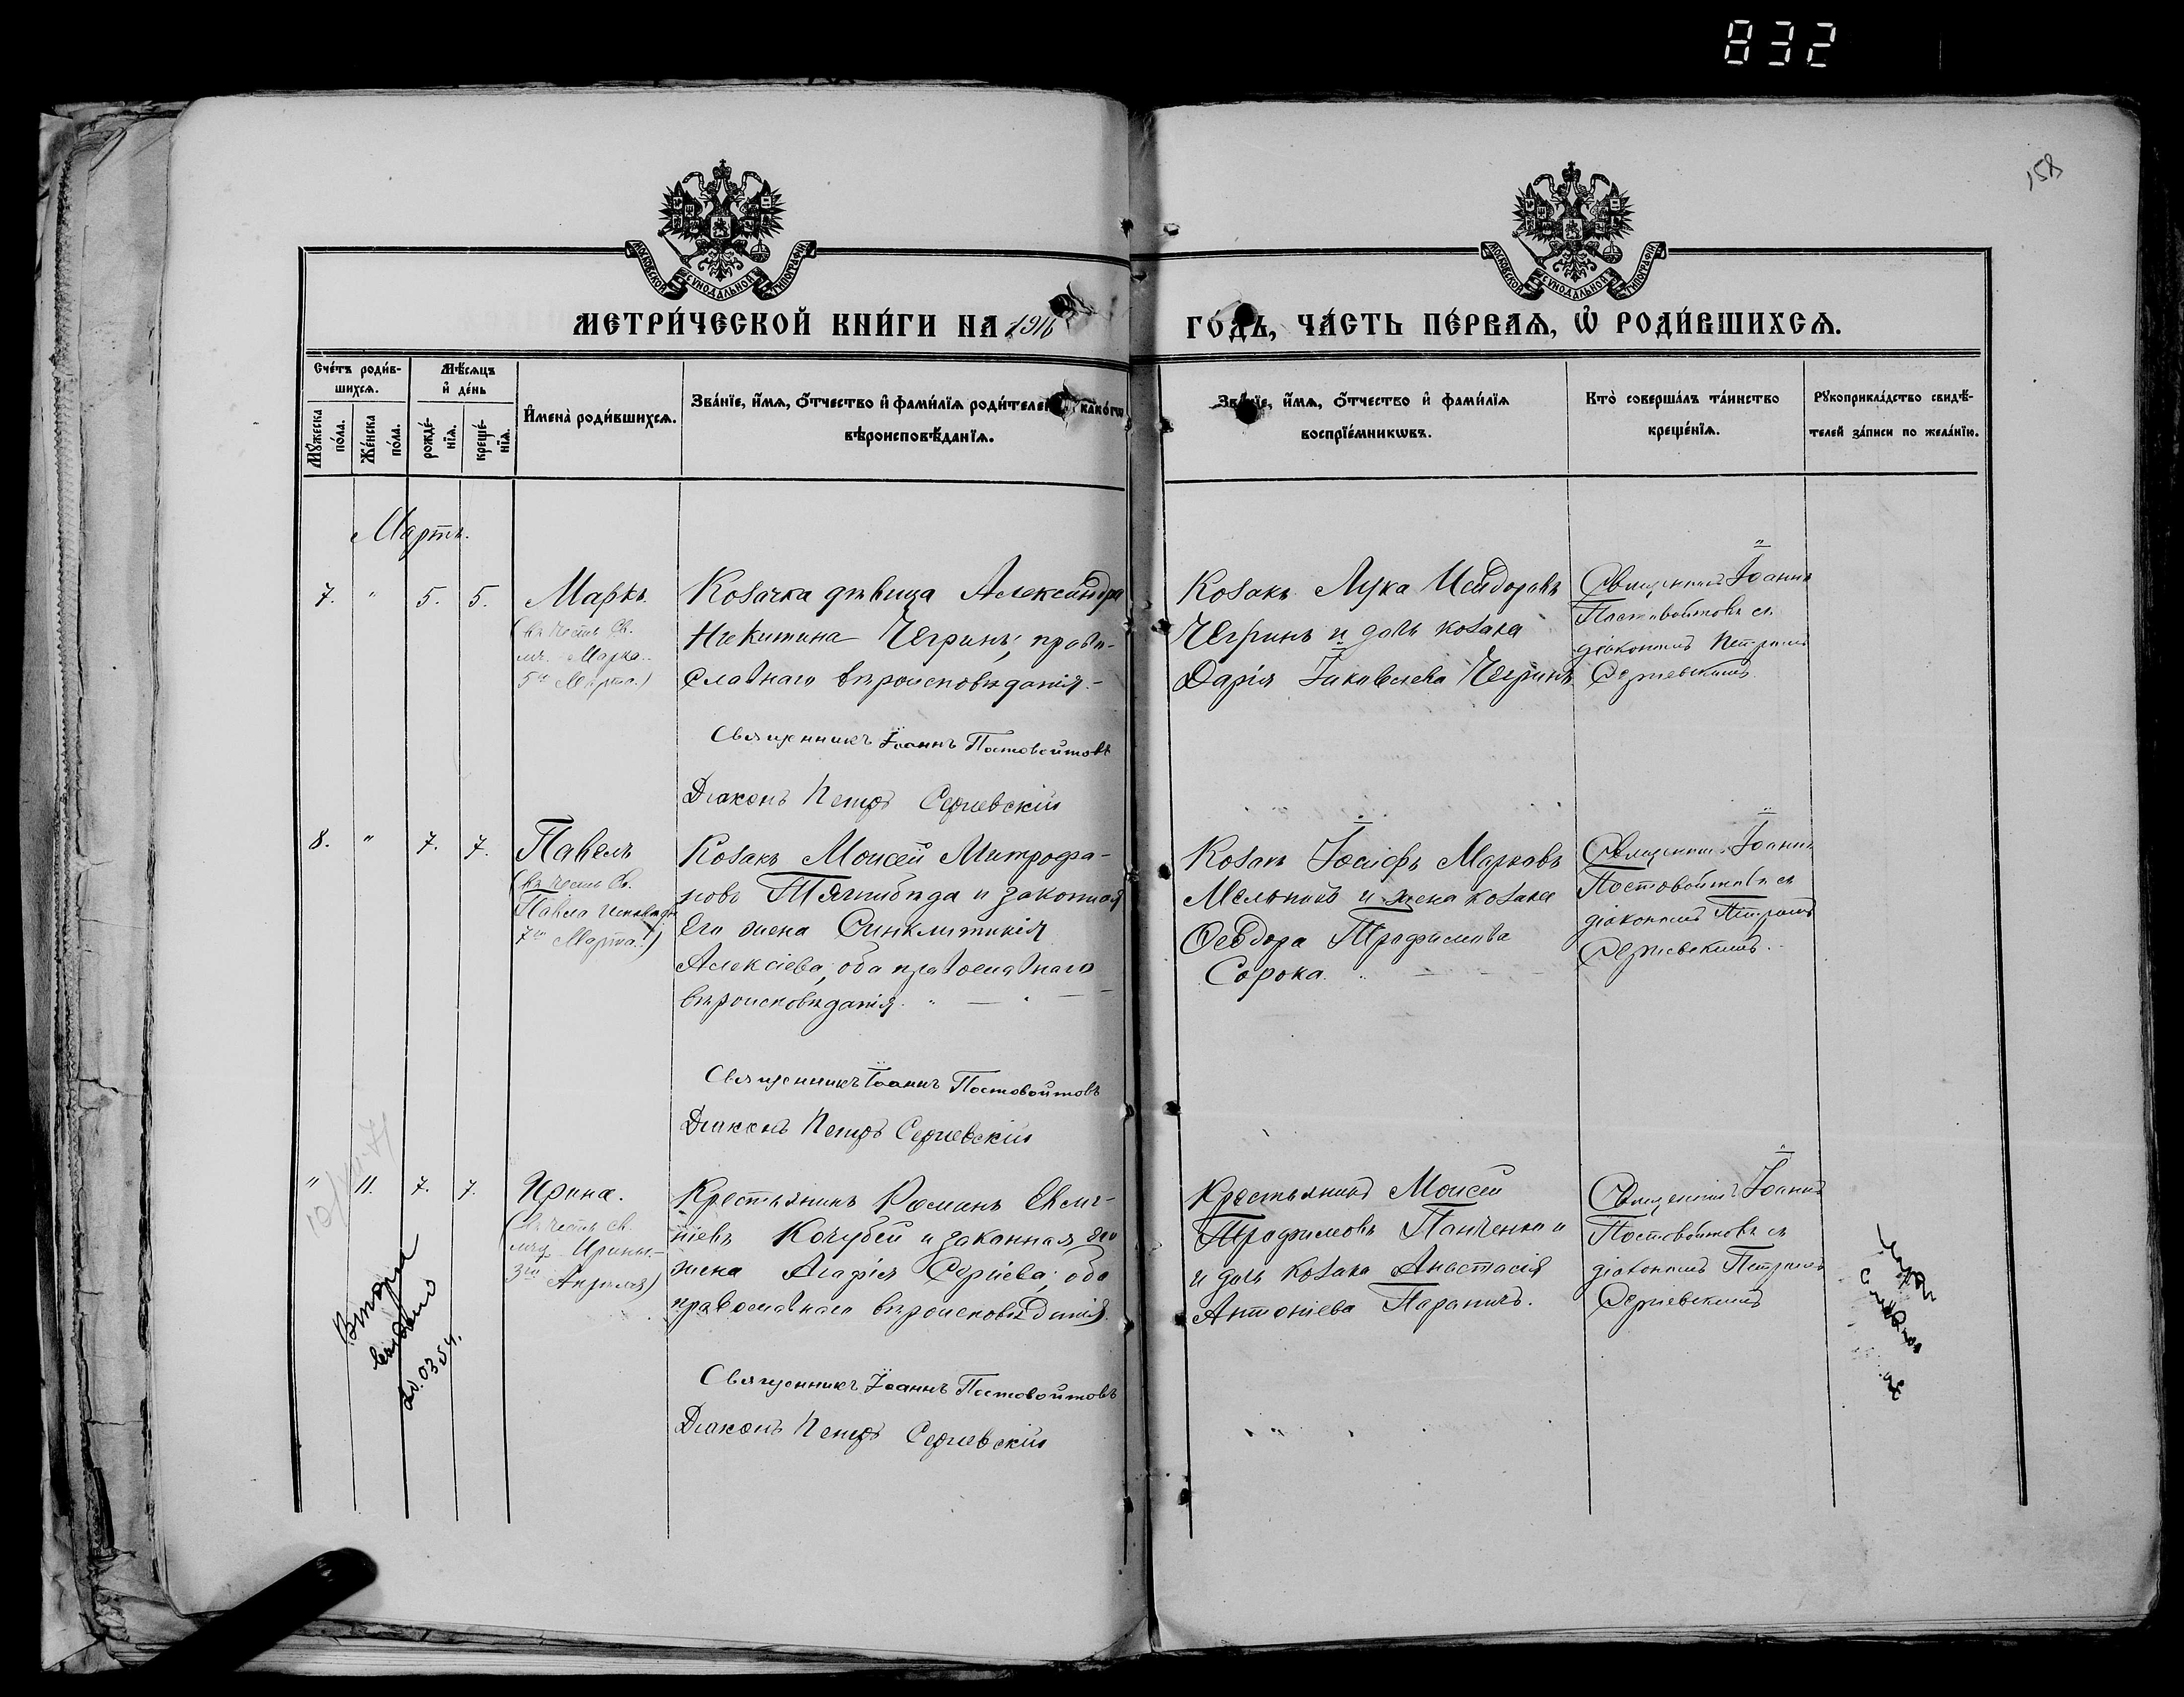 832
158
МОСКОВСКОЙ СУНОДАЛЬНОЙ ТИПОГРАФІИ
МОСКОВСКОЙ СУНОДАЛЬНОЙ ТИПОГРАФІИ
МЕТРИ́ЧЕСКОЙ КНИ́ГИ НА 1916
ГО́ДЪ, ЧА́СТЬ ПЕ́РВАѦ, Ѡ҆ РОДИ́ВШИХСѦ.
Сче́тъ роди́в-
шихсѧ.
Мꙋ́жеска по́ла.
Же́нска по́ла.
Мѣ́сѧцъ
и҆ де́нь
рожде́-
нїѧ.
креще́-
нїѧ.
И҆мена̀ роди́вшихсѧ.
Зва́нїе, и҆́мѧ, о҆́тчество и҆ фами́лїѧ роди́телей како́гѡ
вѣроисповѣ́данїѧ.
Зва́нїе, и҆́мѧ, о҆́тчество и҆ фами́лїѧ
воспрїе́мникѡвъ.
Кто̀ соверша́лъ та́инство
креще́нїѧ.
Рꙋкоприкла́дство свидѣ́-
телей за́писи по жела́нїю.
Мартъ.
7. " 5. 5. Маркъ
(въ честь Св.
мч. Марка
5го Марта.)
Козачка дѣвица Александра
Никитина Чегринъ; право-
славнаго вѣроисповѣданія.-
Священникъ Іоаннъ Постовойтовъ
Діаконъ Петръ Сергіевскій
Козакъ Лука Исидоровъ
Чегринъ и дочь козака
Дарія Іаковлева Чегринъ
Священникъ Іоаннъ
Постовойтовъ съ
діакономъ Петромъ
Сергіевскимъ
8. " 7. 7. Павелъ
(въ честь Св.
Павла исповѣдн.
7го Марта.)
Козакъ Моисей Митрофа-
новъ Тягнибѣда и законная
его жена Синклитикія
Алексіева, оба православнаго
вѣроисповѣданія.
Священникъ Іоаннъ Постовойтовъ
Діаконъ Петръ Сергіевскій
Козакъ Іосифъ Марковъ
Мельникъ и жена козака
Ѳеодора Трофимова
Сорока.
Священникъ Іоаннъ
Постовойтовъ съ
діакономъ Петромъ
Сергіевскимъ.
" 11. 7. 7. Ирина.
(въ честь св.
мчц. Ирины.
3го Апреля)
Крестьянинъ Романъ Евме-
ніевъ Кочубей и законная его
жена Агафія Сергіева, оба
православнаго вѣроисповѣданія.
Священникъ Іоаннъ Постовойтовъ
Діаконъ Петръ Сергіевскій
Крестьянинъ Моисей
Трофимовъ Панченко и
и дочь козака Анастасія
Антоніева Параничъ.
Священникъ Іоаннъ
Постовойтовъ съ
діакономъ Петромъ
Сергіевскимъ
20.03.54.